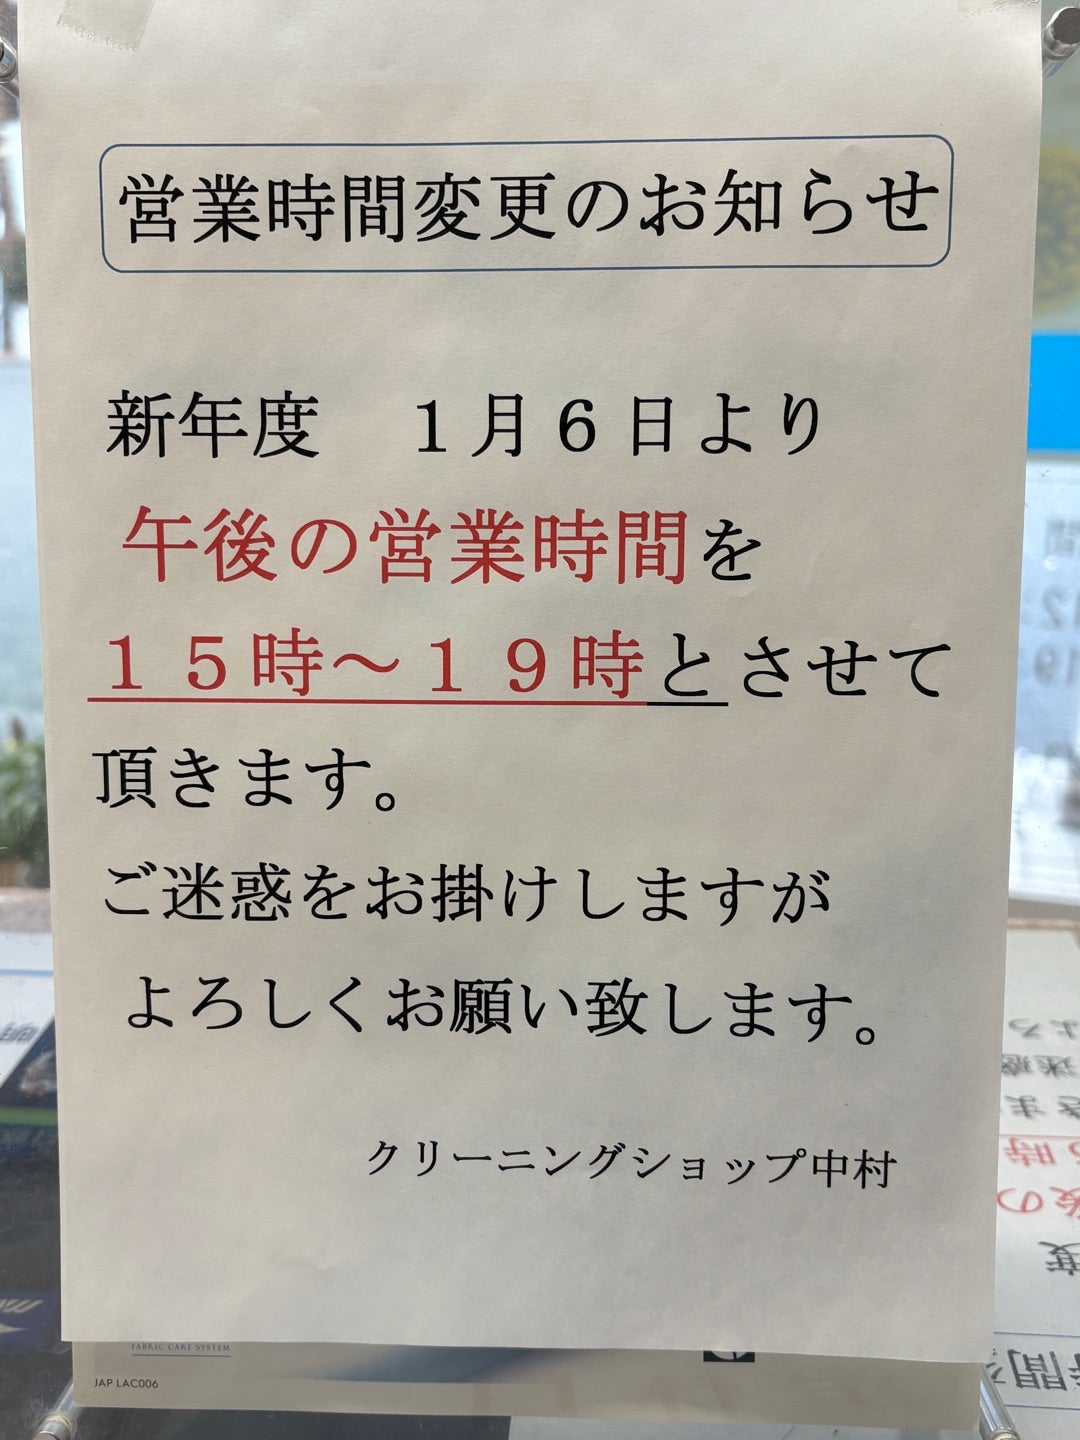 営業時間変更のお知らせ
新年度　１月６日より
午後の営業時間を
１５時～１９時とさせて
頂きます。
ご迷惑をお掛けしますが
よろしくお願い致します。
クリーニングショップ中村
FABRIC CARE SYSTEM
JAP LAC006